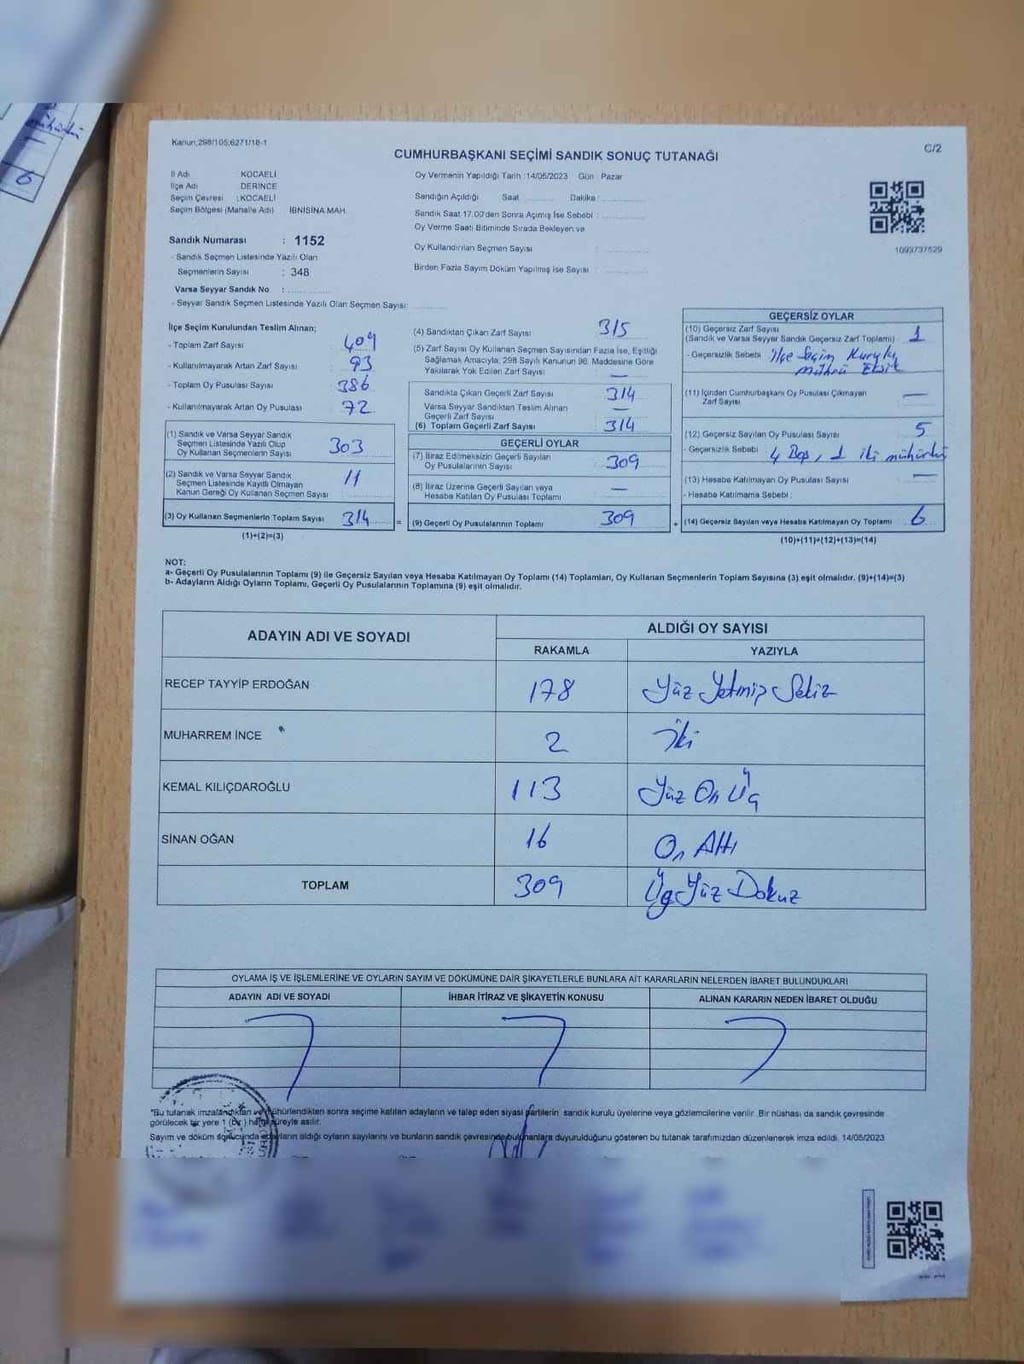 Kanun:298/105;6271/18-1
C/2
CUMHURBAŞKANI SEÇİMİ SANDIK SONUÇ TUTANAĞI
İl Adı KOCAELİ
İlçe Adı DERİNCE
Seçim Çevresi :KOCAELİ
Seçim Bölgesi (Mahalle Adı) İBNİSİNA MAH.
Sandık Numarası : 1152
- Sandık Seçmen Listesinde Yazılı Olan
Seçmenlerin Sayısı : 348
Varsa Seyyar Sandık No :
- Seyyar Sandık Seçmen Listesinde Yazılı Olan Seçmen Sayısı:
Oy Vermenin Yapıldığı Tarih :14/05/2023 Gün : Pazar
Sandığın Açıldığı Saat Dakika :
Sandık Saat 17.00'den Sonra Açımış İse Sebebi :
Oy Verme Saati Bitiminde Sırada Bekleyen ve
Oy Kullandırılan Seçmen Sayısı :
Birden Fazla Sayım Döküm Yapılmış İse Sayısı :
1093737529
İlçe Seçim Kurulundan Teslim Alınan;
- Toplam Zarf Sayısı 409
- Kullanılmayarak Artan Zarf Sayısı 93
- Toplam Oy Pusulası Sayısı 386
- Kullanılmayarak Artan Oy Pusulası 72
(1) Sandık ve Varsa Seyyar Sandık
Seçmen Listesinde Yazılı Olup
Oy Kullanan Seçmenlerin Sayısı 303
(2) Sandık ve Varsa Seyyar Sandık
Seçmen Listesinde Kayıtlı Olmayan
Kanun Gereği Oy Kullanan Seçmen Sayısı 11
(3) Oy Kullanan Seçmenlerin Toplam Sayısı 314 =
(1)+(2)=(3)
(4) Sandıktan Çıkan Zarf Sayısı 315
(5) Zarf Sayısı Oy Kullanan Seçmen Sayısından Fazla İse, Eşitliği
Sağlamak Amacıyla, 298 Sayılı Kanunun 98. Maddesine Göre
Yakılarak Yok Edilen Zarf Sayısı —
Sandıkta Çıkan Geçerli Zarf Sayısı 314
Varsa Seyyar Sandıktan Teslim Alınan
Geçerli Zarf Sayısı —
(6) Toplam Geçerli Zarf Sayısı 314
GEÇERLİ OYLAR
(7) İtiraz Edilmeksizin Geçerli Sayılan
Oy Pusulalarının Sayısı 309
(8) İtiraz Üzerine Geçerli Sayılan veya
Hesaba Katılan Oy Pusulası Toplamı —
(9) Geçerli Oy Pusulalarının Toplamı 309 +
GEÇERSİZ OYLAR
(10) Geçersiz Zarf Sayısı
(Sandık ve Varsa Seyyar Sandık Geçersiz Zarf Toplamı) 1
- Geçersizlik Sebebi İlçe Seçim Kurulu
mührü Eksik
(11) İçinden Cumhurbaşkanı Oy Pusulası Çıkmayan
Zarf Sayısı —
(12) Geçersiz Sayılan Oy Pusulası Sayısı 5
- Geçersizlik Sebebi : 4 Boş, 1 iki mühürlü
(13) Hesaba Katılmayan Oy Pusulası Sayısı —
- Hesaba Katılmama Sebebi :
(14) Geçersiz Sayılan veya Hesaba Katılmayan Oy Toplamı 6
(10)+(11)+(12)+(13)=(14)
NOT:
a- Geçerli Oy Pusulalarının Toplamı (9) ile Geçersiz Sayılan veya Hesaba Katılmayan Oy Toplamı (14) Toplamları, Oy Kullanan Seçmenlerin Toplam Sayısına (3) eşit olmalıdır. (9)+(14)=(3)
b- Adayların Aldığı Oyların Toplamı, Geçerli Oy Pusulalarının Toplamına (9) eşit olmalıdır.
ADAYIN ADI VE SOYADI ALDIĞI OY SAYISI
RAKAMLA YAZIYLA
RECEP TAYYİP ERDOĞAN 178 Yüz Yetmiş Sekiz
MUHARREM İNCE 2 İki
KEMAL KILIÇDAROĞLU 113 Yüz On Üç
SİNAN OĞAN 16 On Altı
TOPLAM 309 Üç Yüz Dokuz
OYLAMA İŞ VE İŞLEMLERİNE VE OYLARIN SAYIM VE DÖKÜMÜNE DAİR ŞİKAYETLERLE BUNLARA AİT KARARLARIN NELERDEN İBARET BULUNDUKLARI
ADAYIN ADI VE SOYADI İHBAR İTİRAZ VE ŞİKAYETİN KONUSU ALINAN KARARIN NEDEN İBARET OLDUĞU
"Bu tutanak imzalandıktan ve mühürlendikten sonra seçime katılan adayların ve talep eden siyasi partilerin sandık kurulu üyelerine veya gözlemcilerine verilir. Bir nüshası da sandık çevresinde
görülecek bir yere 1 (bir) hafta süreyle asılır.
Sayım ve döküm sonucunda adayların aldığı oyların sayılarını ve bunların sandık çevresinde bulunanlara duyurulduğunu gösteren bu tutanak tarafımızdan düzenlenerek imza edildi. 14/05/2023